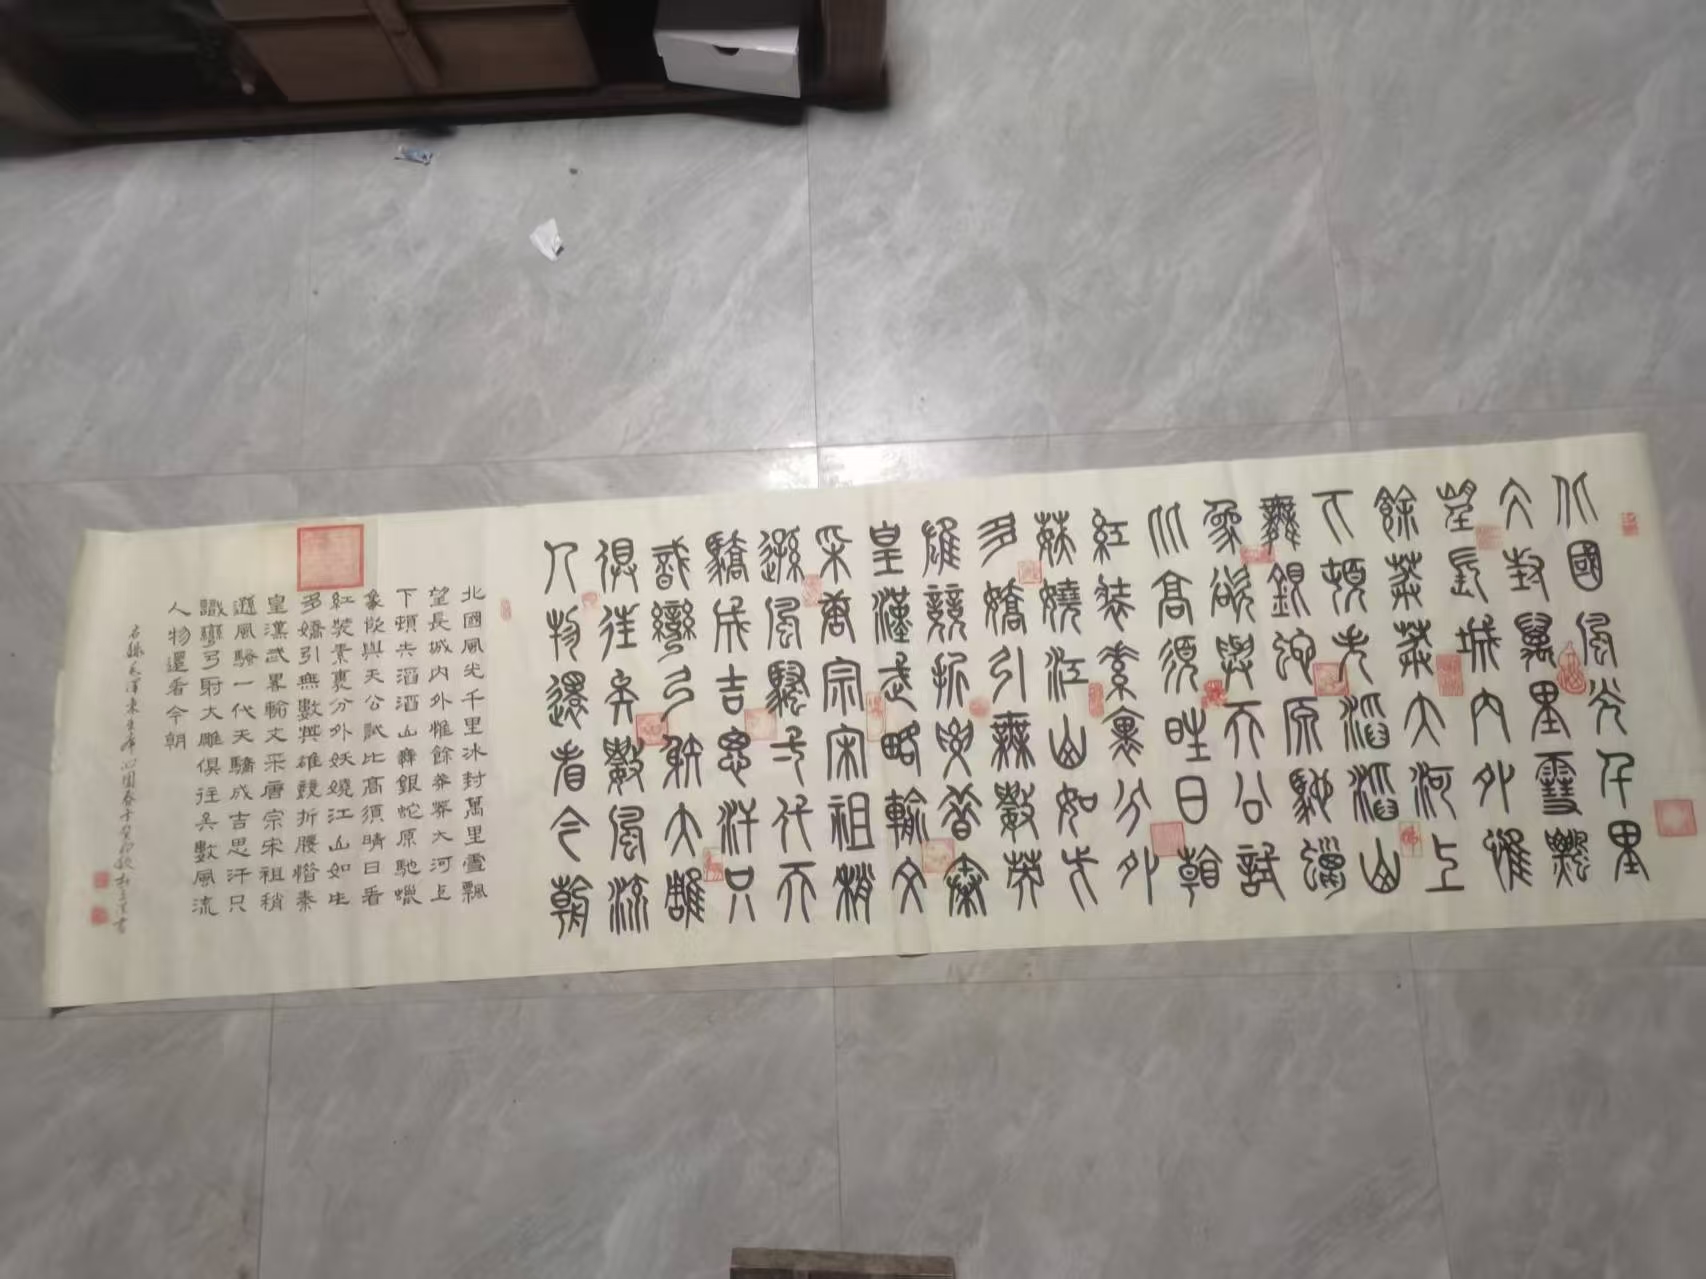 北國風光千里
冰封萬里雪飄
望長城內外惟
餘莽莽大河上
下頓失滔滔山
舞銀蛇原馳蠟
象欲與天公試
比高須晴日
紅裝素裹分外
妖嬈江山如此
多嬌引無數英
雄競折腰惜秦
皇漢武略輸文
采唐宗宋祖稍
遜風騷一代天
驕成吉思汗只
識彎弓射大雕
俱往矣數風流
人物還看今朝
北國風光千里冰封萬里雪飄
望長城内外惟餘莽莽大河上
下頓失滔滔山舞銀蛇原馳蠟
象欲與天公試比高須晴日看
紅裝素裹分外妖嬈江山如此
多嬌引無數英雄競折腰惜秦
皇漢武畧輸文采唐宗宋祖稍
遜風騷一代天驕成吉思汗只
識彎弓射大雕俱往矣數風流
人物還看今朝
右錄毛澤東主席沁園春于癸卯秋書